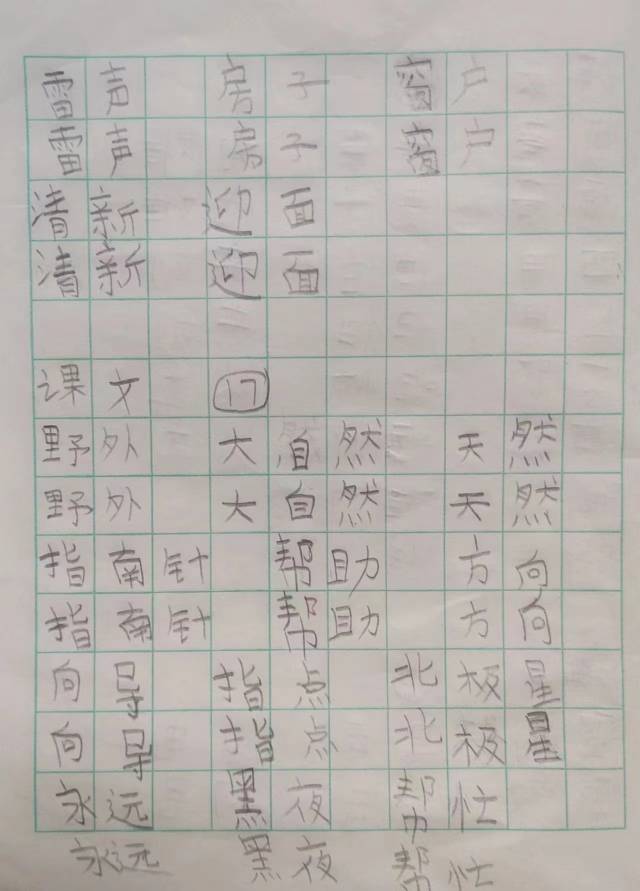 雷声 房子 窗户
雷声 房子 窗户
清新 迎面
清新 迎面
课文 17
野外 大自然 天然
野外 大自然 天然
指南针 帮助 方向
指南针 帮助 方向
向导 指点 北极星
向导 指点 北极星
永远 黑夜 帮忙
永远 黑夜 帮忙